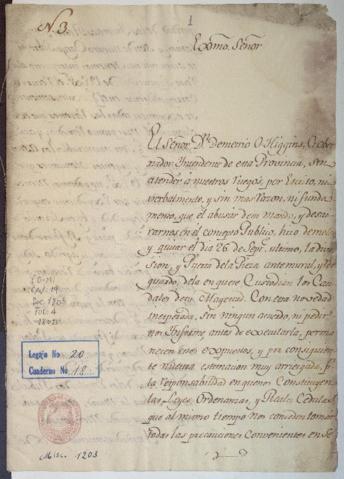 N. 3.
1
Exmo. Señor
El Señor Dn. Demetrio O Higgins, Gober-
nador Intendente de esta Provincia, sin
atender a nuestros ruegos, por Escrito, ni
verbalmente, y sin mas razon, ni funda-
mento, que el abusar de su Mando, y desai-
rarnos en el concepto Publico, hizo demoler
y quitar el dia 26 de Sepre. ultimo, la divi-
sion, y Puerta de la Pieza antemural, y Res-
guardo, de la en que se Custodian los Cau-
dales de su Magestad. Con esta novedad
inesperada, sin ningun acuerdo, ni pedir-
nos Informe, antes de executarla, perma-
necemos expuestos, y por consiguien-
te nuestra estimacion muy arriesgada, p.
la responsabilidad en que nos Constituyen
las Leyes, Ordenanzas, y Reales Cedulas
que al mismo tiempo nos conceden tomar
todas las precauciones Convenientes en Se-
Legajo No 20
Cuaderno No 18
Misc. 1203